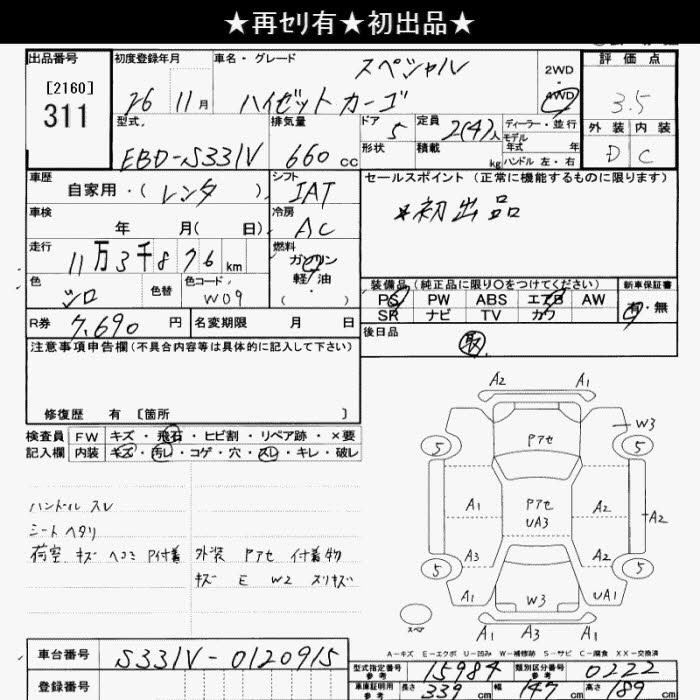 ★再セリ有★初出品★
出品番号 初度登録年月 車名・グレード スペシャル 2WD・4WD 評価点
[2160] 311 26 11月 ハイゼットカーゴ 3.5
型式 排気量 ドア 5 定員 2(4)人 ディーラー・並行 外装 内装
EBD-S331V 660cc 形状 積載 kg モデル年式 年 ハンドル 左・右 D C
車歴 自家用・(レンタ) シフト IAT セールスポイント(正常に機能するものに限ります)
車検 年 月(日) 冷房 AC *初出品
走行 11万3千876km 燃料 ガソリン・軽油・( )
色 シロ 色替 色コード W09 装備品(純正品に限り〇をつけてください) 新車保証書
PS PW ABS エアB AW 有・無
R券 7,690円 名変期限 月 日 SR ナビ TV カワ
注意事項申告欄(不具合内容等は具体的に記入して下さい) 後日品 取
修復歴 有 [箇所 ]
検査員 FW キズ・飛石・ヒビ割・リペア跡・×要
記入欄 内装 キズ・汚レ・コゲ・穴・スレ・キレ・破レ
ハンドル スレ
シート ヘタリ
荷室 キズ ヘコミ P付着 外装 Pアセ 付着物
キズ E W2 スリキズ
A2 A1
W3
5 Pアセ 5
A1 Pアセ A2 A2
UA3
A3 A2
5 5
A1 W3 UA1
スペア A1 A3 A1
A-キズ E-エクボ U-凹み W-補修跡 S-サビ C-腐食 XX-交換済
車台番号 S331V-0120915 型式指定番号 参考 15984 類別区分番号 参考 0222
登録番号 車庫証明用 参考 長さ 339cm 幅 147cm 高さ 189cm